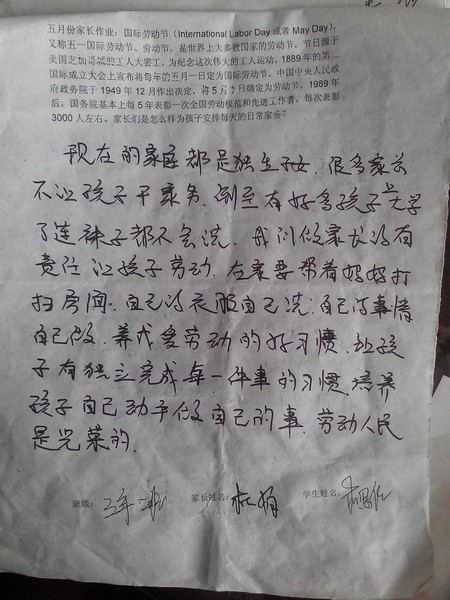 五月份家长作业：国际劳动节（International Labor Day 或者 May Day），
又称五一国际劳动节、劳动节，是世界上大多数国家的劳动节。节日源于
美国芝加哥城的工人大罢工，为纪念这次伟大的工人运动，1889年的第二
国际成立大会上宣布将每年的五月一日定为国际劳动节。中国中央人民政
府政务院于 1949 年 12 月作出决定，将 5 月 1 日确定为劳动节。1989 年
后，国务院基本上每 5 年表彰一次全国劳动模范和先进工作者，每次表彰
3000 人左右。家长们是怎么样为孩子安排每天的日常家务？
现在的家庭都是独生子女，很多家长
不让孩子干家务，甚至有好多孩子上大学
了连袜子都不会洗，我们做家长的有
责任让孩子劳动，在家要带着妈妈打
扫房间，自己的衣服自己洗，自己的事情
自己做，养成爱劳动的好习惯，让孩
子有独立完成每一件事的习惯，培养
孩子自己动手做自己的事，劳动人民
是光荣的。
班级： 家长姓名： 学生姓名：